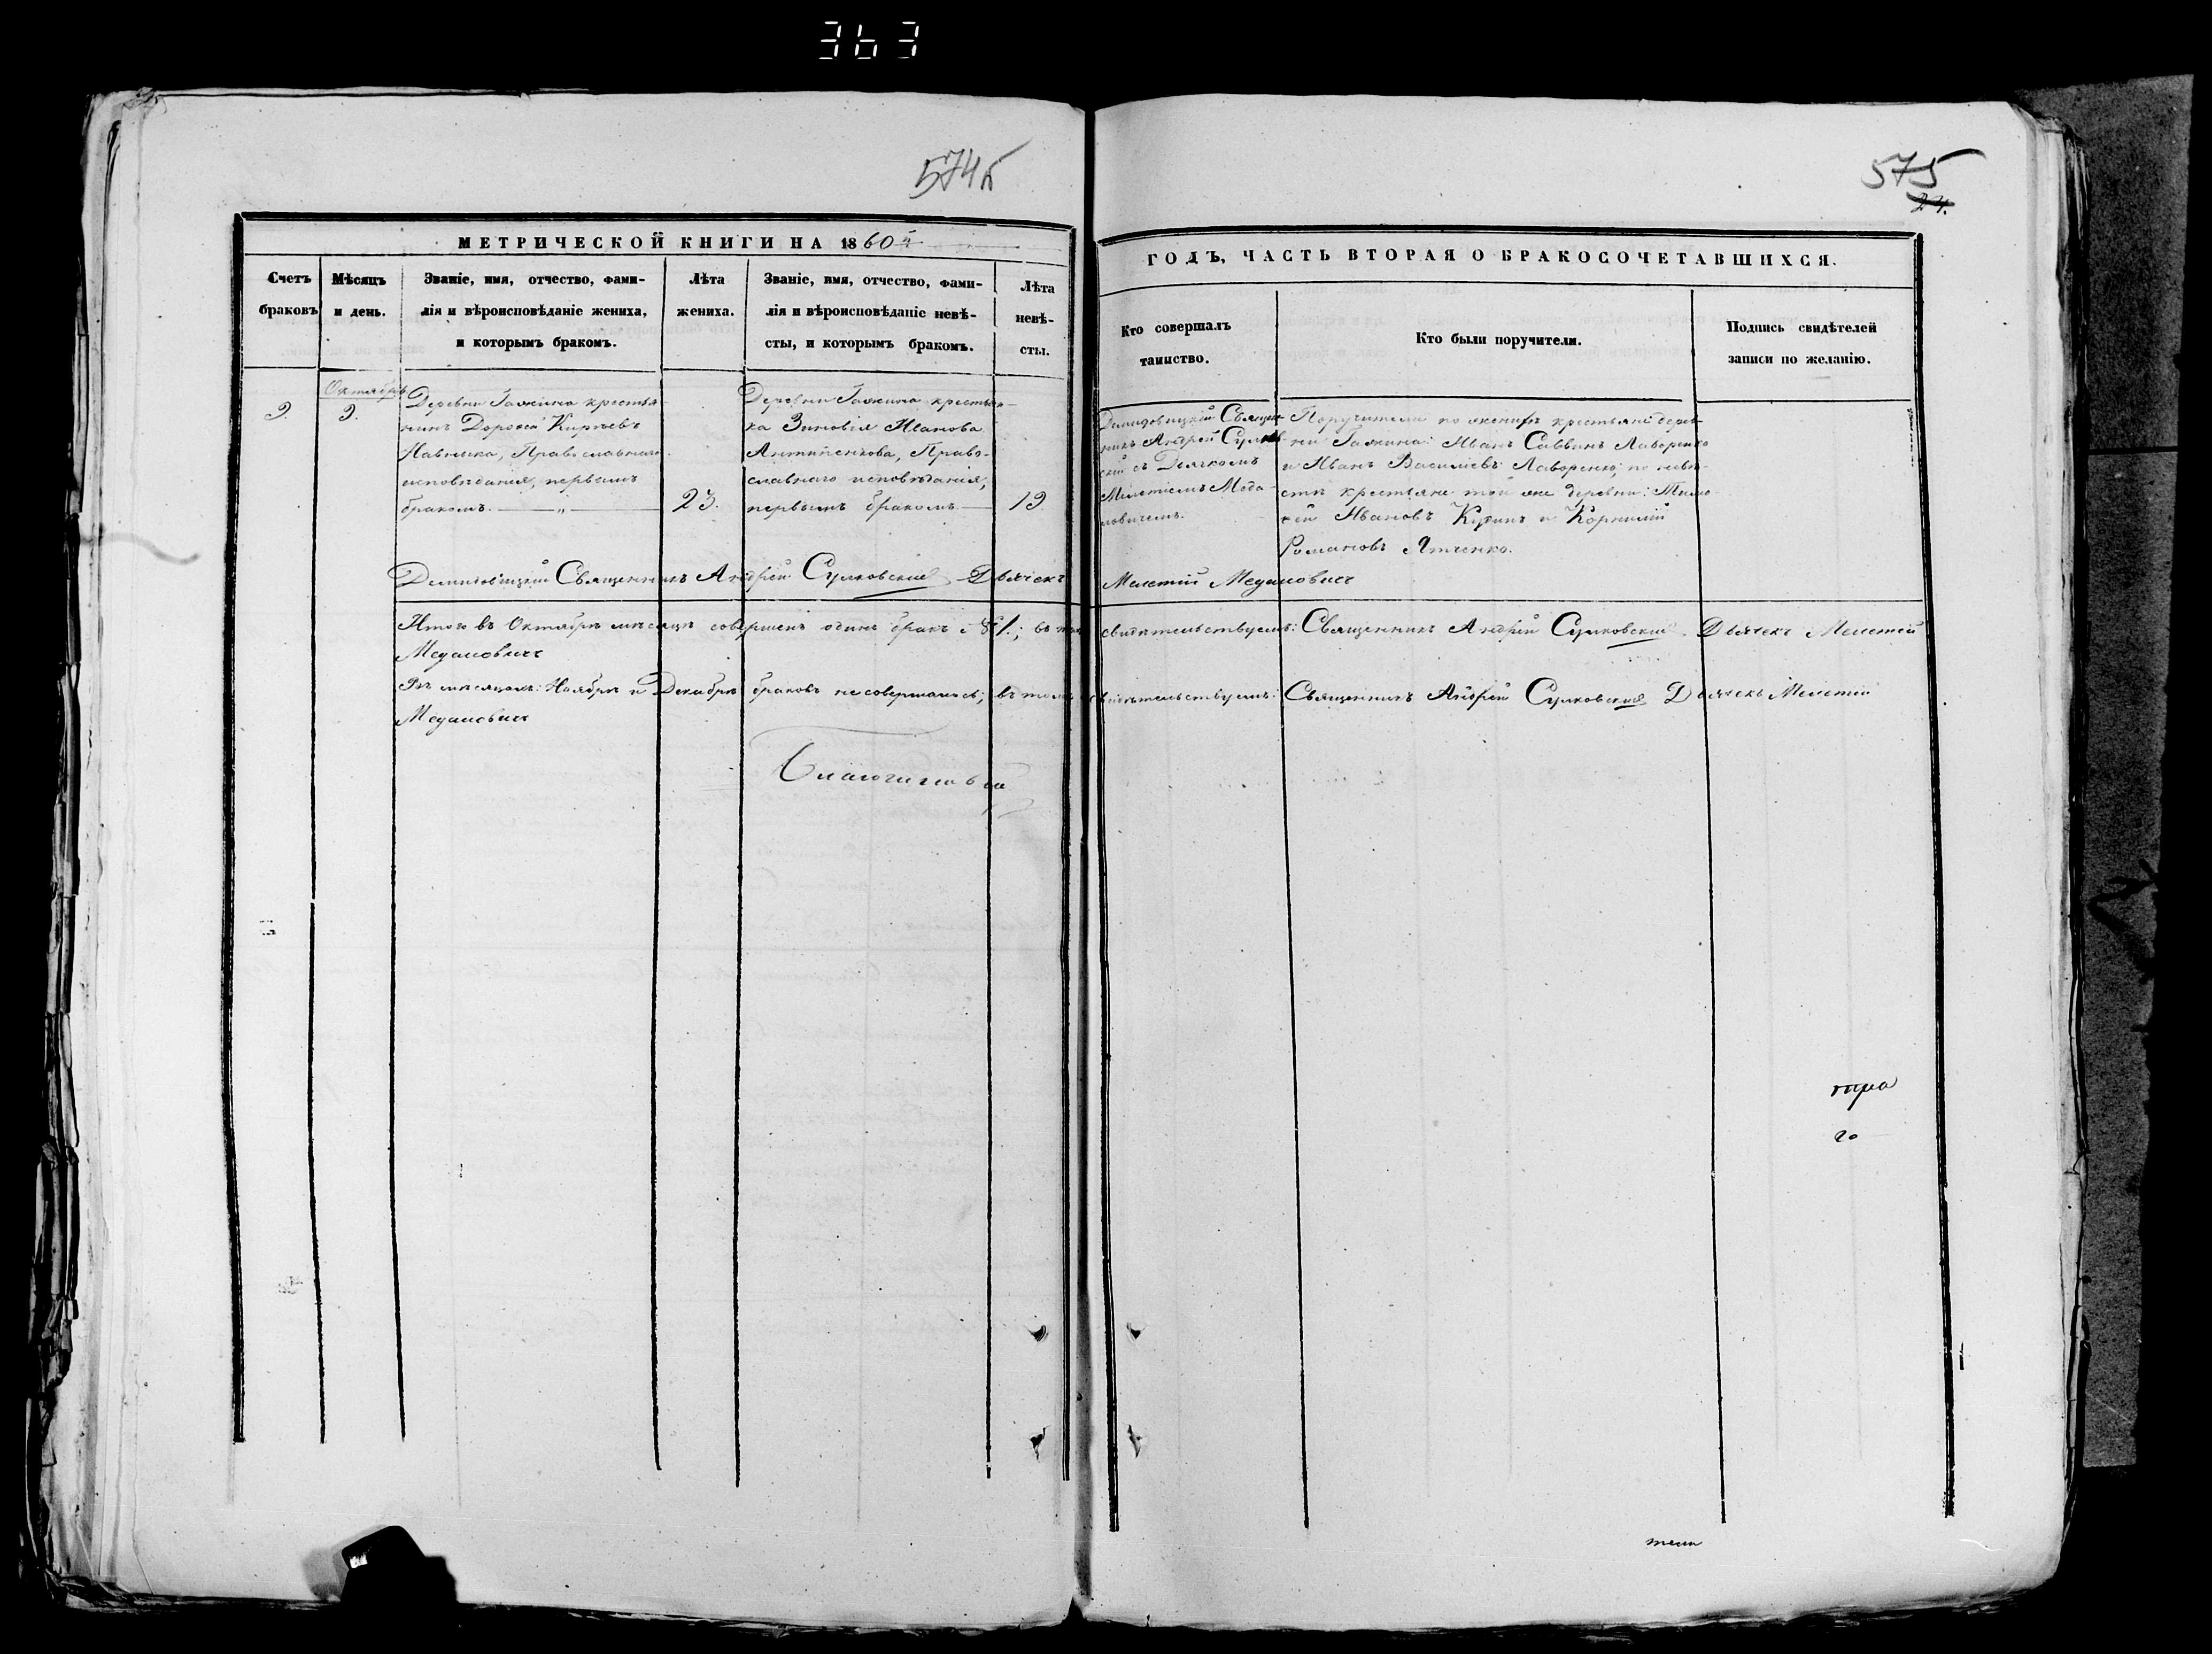 363
574б
575
24.
МЕТРИЧЕСКОЙ КНИГИ НА 1860й
ГОДЪ, ЧАСТЬ ВТОРАЯ О БРАКОСОЧЕТАВШИХСЯ.
Счетъ
браковъ
Мѣсяцъ
и день.
Званіе, имя, отчество, фами-
лія и вѣроисповѣданіе жениха,
и которымъ бракомъ.
Лѣта
жениха.
Званіе, имя, отчество, фами-
лія и вѣроисповѣданіе невѣ-
сты, и которымъ бракомъ.
Лѣта
невѣ-
сты.
Кто совершалъ
таинство.
Кто были поручители.
Подпись свидѣтелей
записи по желанію.
9.
Октябрь
9.
Деревни Гажина крестья-
нинъ Дорофей Кириевъ
Православнаго
исповѣданія, первымъ
бракомъ.
23.
Деревни Гажина крестьян-
ка Зиновія Иванова
Антипенкова, Право-
славнаго исповѣданія,
первымъ бракомъ.
19
Демидовицкій Священ-
никъ Андрей Сулков-
скій съ Дьячкомъ
Мелетіемъ Меда-
новичемъ.
Поручители по женихѣ крестьяне дерев-
ни Гажина: Иванъ Саввинъ Лаворенко
и Иванъ Василіевъ Лаворенко; по невѣ-
стѣ крестьяне той же деревни: Тимо-
фей Ивановъ и Корнилій
Романовъ Ятченко.
Демидовицкій Священникъ Андрей Сулковскій Дьячекъ Мелетій Медановичъ
Итого въ Октябрѣ мѣсяцѣ совершенъ одинъ бракъ 1.; въ томъ свидѣтельствуемъ: Священникъ Андрей Сулковскій Дьячекъ Мелетій
Медановичъ
Въ мѣсяцахъ: Ноябрѣ и Декабрѣ браковъ не совершалось; въ томъ свидѣтельствуемъ: Священникъ Андрей Сулковскій Дьячекъ Мелетій
Медановичъ
го